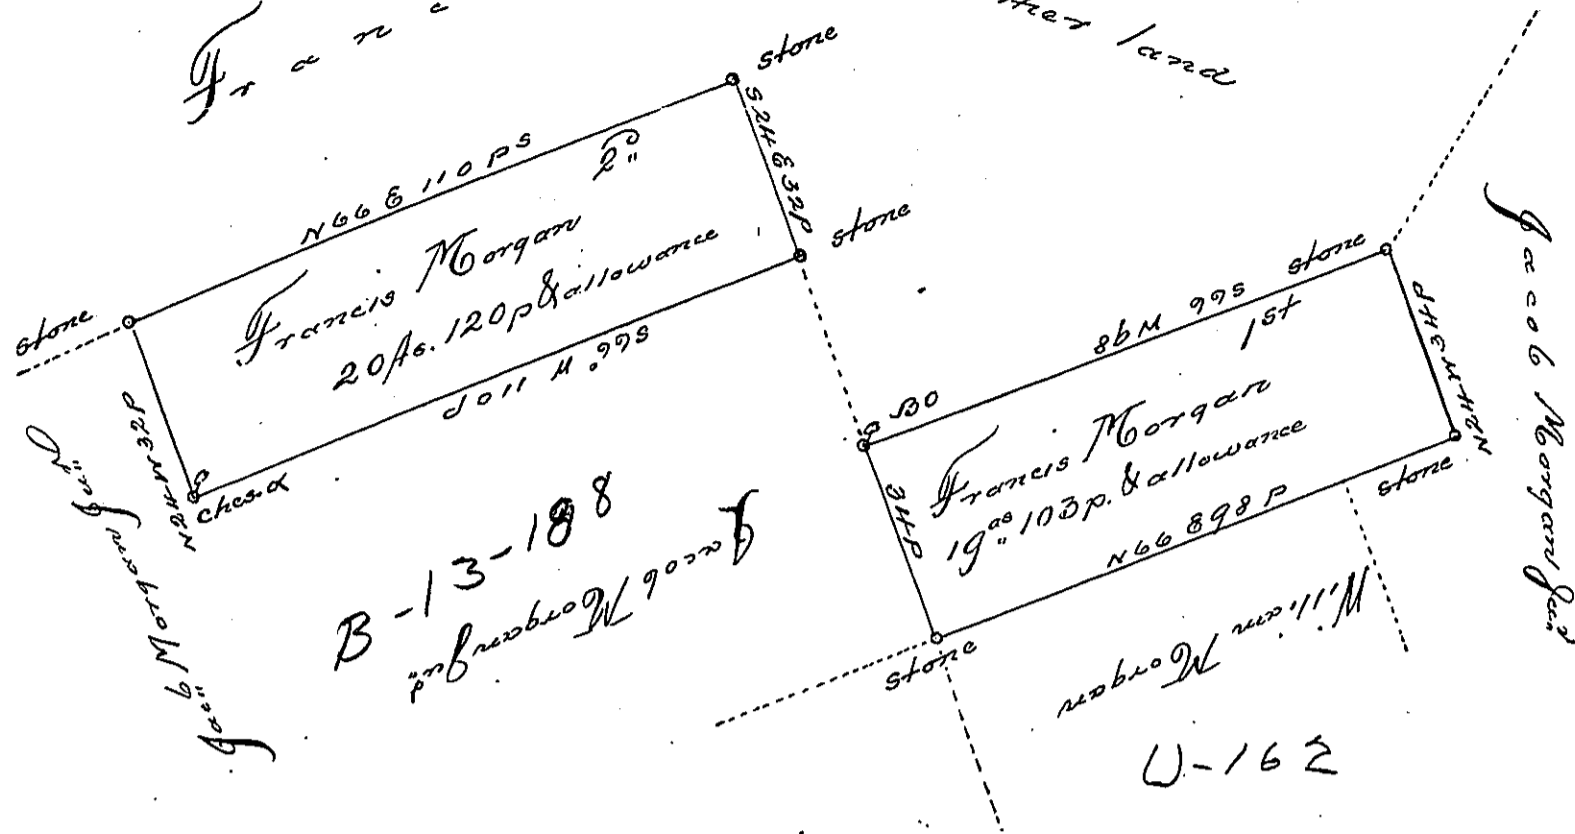 Franc
ther land
stone
N66 E 110 Ps
2d"
S24 E 32P
stone
Francis Morgan
20 As. 120 p & allowance
stone
S66° W 110P
N24 W 32P
Ches. O
Jacob Morgan Jun"
B-13-188
Jacob Morgan Jun"
BO
S66 W 98
1st
stone
N24 W 34P
stone
Francis Morgan
19as" 103 p. & allowance
34P
N66 E 98 P
stone
William Morgan
U-162
Jacob Morgan Jun